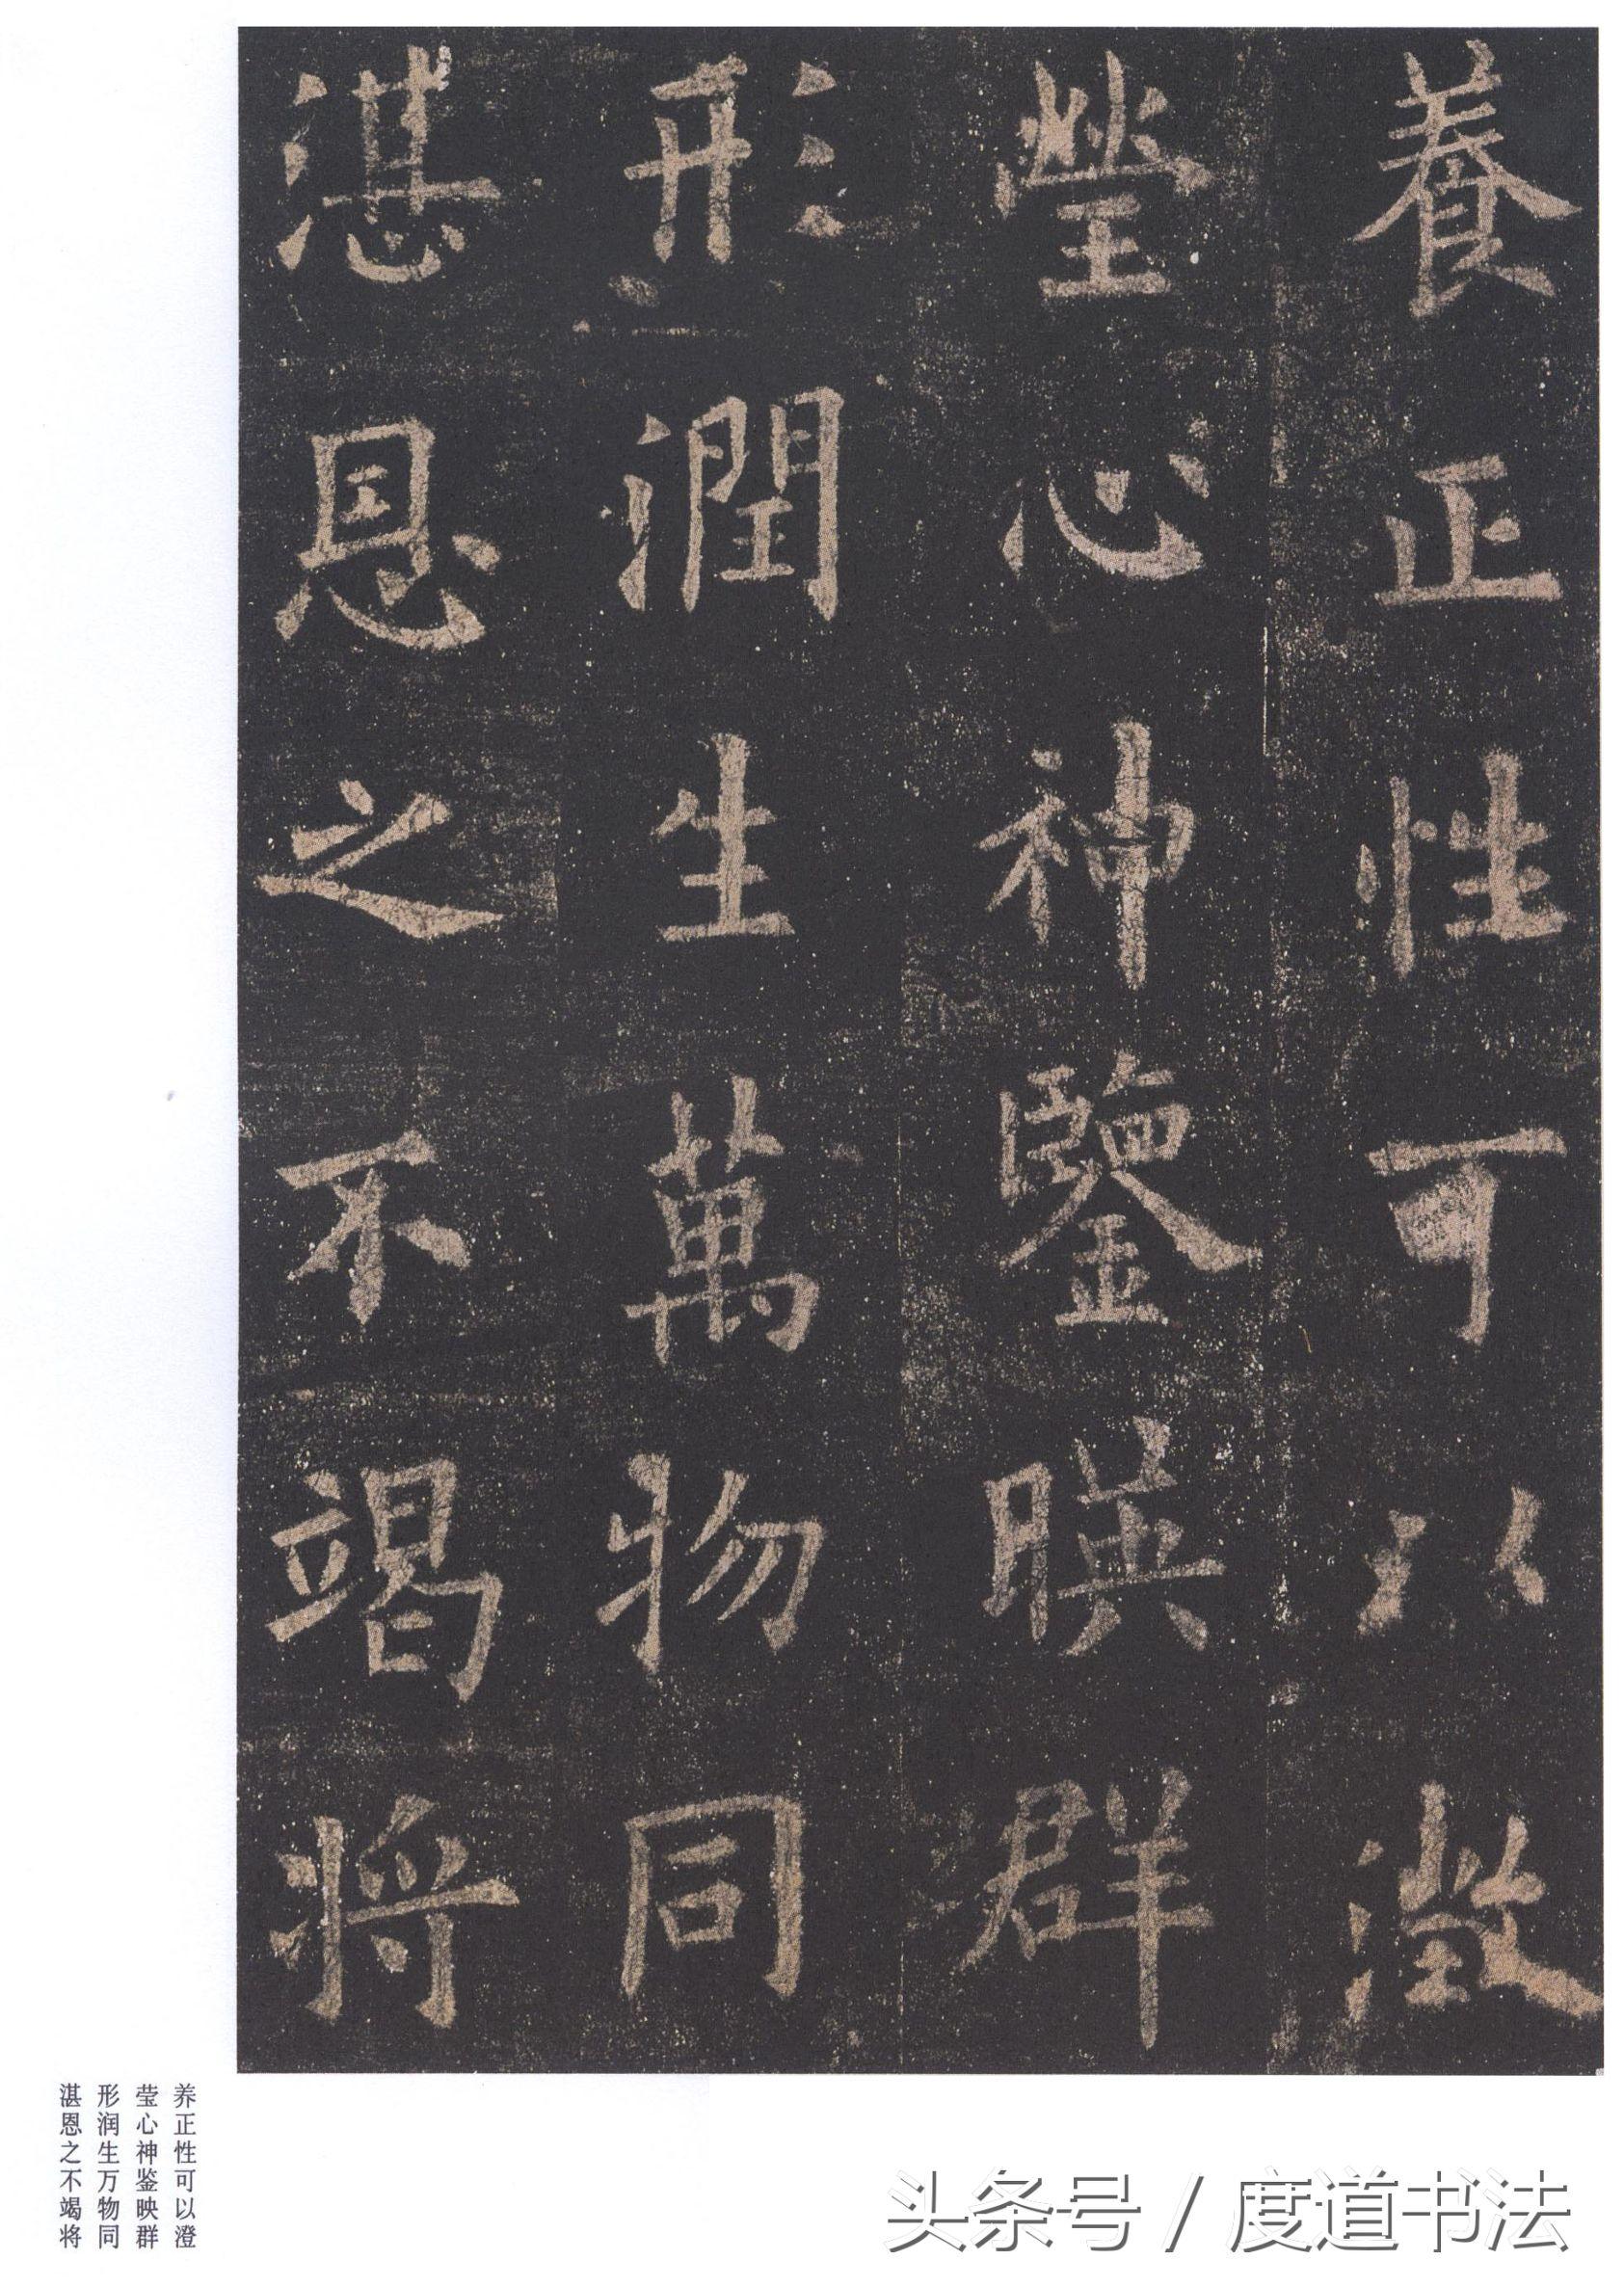 養正性可以澂
瑩心神鑒暎群
形潤生萬物同
湛恩之不竭将
养正性可以澄
莹心神鉴映群
形润生万物同
湛恩之不竭将
头条号 / 度道书法